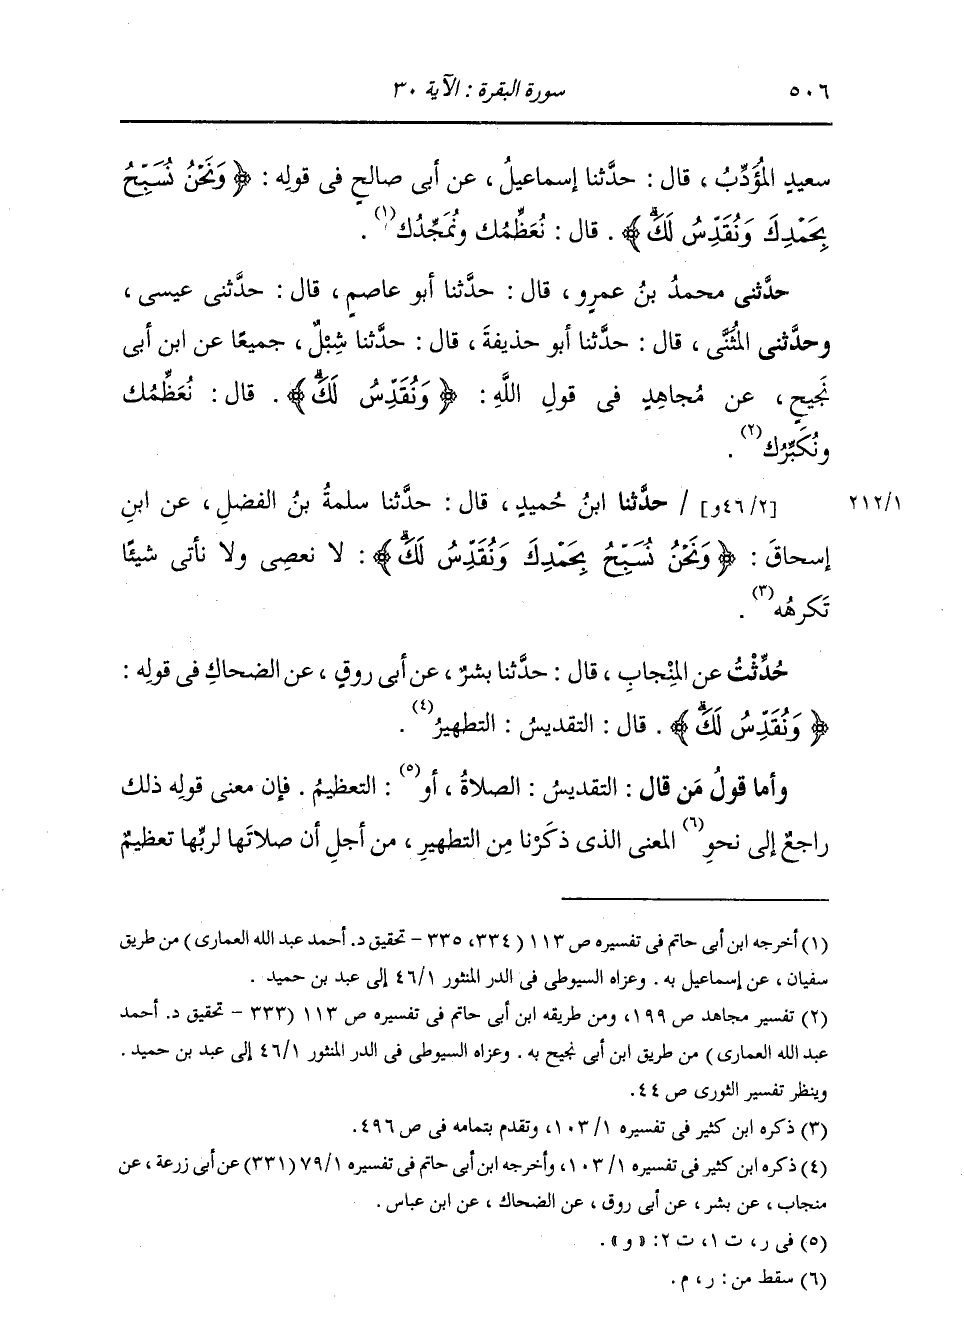 ٥٠٦ سورة البقرة : الآية ٣٠
سعيدٍ المُؤَدِّبُ ، قال : حدَّثنا إسماعيلُ ، عن أبى صالحٍ فى قولِه : ﴿ وَنَحْنُ نُسَبِّحُ
بِحَمْدِكَ وَنُقَدِّسُ لَكَۖ ﴾ . قال : نُعَظِّمُك ونُمَجِّدُك(١) .
حدَّثنى محمدُ بنُ عمرٍو ، قال : حدَّثنا أبو عاصمٍ ، قال : حدَّثنى عيسى ،
وحدَّثنى المُثَنَّى ، قال : حدَّثنا أبو حذيفةَ ، قال : حدَّثنا شِبْلٌ ، جميعًا عن ابن أبى
نَجيحٍ ، عن مُجاهِدٍ فى قولِ اللَّهِ : ﴿ وَنُقَدِّسُ لَكَۖ ﴾ . قال : نُعَظِّمُك
ونُكَبِّرُك(٢) .
٢١٢/١ [٤٦/٢و] / حدَّثنا ابنُ حُميدٍ ، قال : حدَّثنا سلمةُ بنُ الفضلِ ، عن ابنِ
إسحاقَ : ﴿ وَنَحْنُ نُسَبِّحُ بِحَمْدِكَ وَنُقَدِّسُ لَكَۖ ﴾ : لا نعصِى ولا نأتى شيئًا
تَكرهُه(٣) .
حُدِّثْتُ عن المِنْجابِ ، قال : حدَّثنا بشرٌ ، عن أبى روقٍ ، عن الضحاكِ فى قولِه :
﴿ وَنُقَدِّسُ لَكَۖ ﴾ . قال : التقديسُ : التطهيرُ(٤) .
وأما قولُ مَن قال : التقديسُ : الصلاةُ ، أو(٥) : التعظيمُ . فإن معنى قولِه ذلك
راجعٌ إلى نحوِ(٦) المعنى الذى ذكَرْنا مِن التطهيرِ ، من أجلِ أن صلاتَها لربِّها تعظيمٌ
(١) أخرجه ابن أبى حاتم فى تفسيره ص ١١٣ (٣٣٤، ٣٣٥ - تحقيق د. أحمد عبد الله العمارى) من طريق
سفيان ، عن إسماعيل به . وعزاه السيوطى فى الدر المنثور ٤٦/١ إلى عبد بن حميد .
(٢) تفسير مجاهد ص ١٩٩، ومن طريقه ابن أبى حاتم فى تفسيره ص ١١٣ (٣٣٣ - تحقيق د. أحمد
عبد الله العمارى) من طريق ابن أبى نجيح به . وعزاه السيوطى فى الدر المنثور ٤٦/١ إلى عبد بن حميد .
وينظر تفسير الثورى ص ٤٤.
(٣) ذكره ابن كثير فى تفسيره ١٠٣/١، وتقدم بتمامه فى ص ٤٩٦.
(٤) ذكره ابن كثير فى تفسيره ١٠٣/١، وأخرجه ابن أبى حاتم فى تفسيره ٧٩/١ (٣٣١) عن أبى زرعة ، عن
منجاب ، عن بشر ، عن أبى روق ، عن الضحاك ، عن ابن عباس .
(٥) فى ر، ت ١، ت ٢: «و» .
(٦) سقط من : ر ، م .